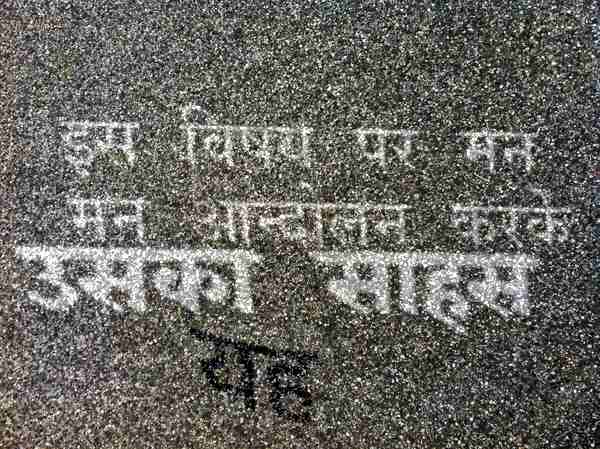 इस विषय पर मन
मन आन्दोलन करके
उसका साहस
यह